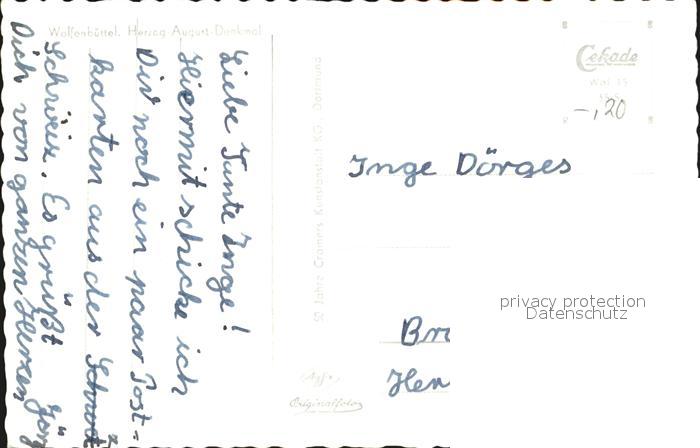 Wolfenbüttel. Herzog August-Denkmal
Liebe Tante Inge!
Hiermit schicke ich
Dir noch ein paar Post-
karten aus der
Schweiz. Es grüßt
Dich von ganzen Herzen
50 Jahre Cramers Kunstanstalt KG., Dortmund
Originalfoto
Cekade
Wol 35
-,20
Inge Dörges
Br
Her
privacy protection
Datenschutz